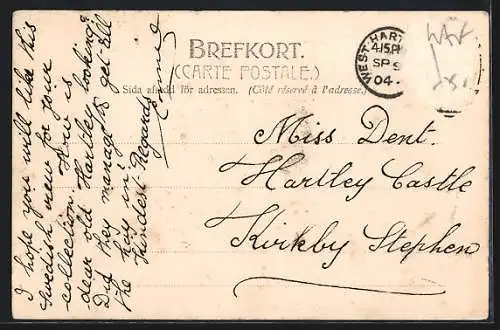 BREFKORT.
(CARTE POSTALE.)
Sida afsedd för adressen. (Côté réservé à l'adresse.)
WEST HART
4.15 PM
SP 9
04
Miss Dent.
Hartley Castle
Kirkby Stephen
I hope you will like this
Swedish view for your
collection. How is
dear old Hartley looking?
Did they manage to get all
the hay in?
Kindest Regards